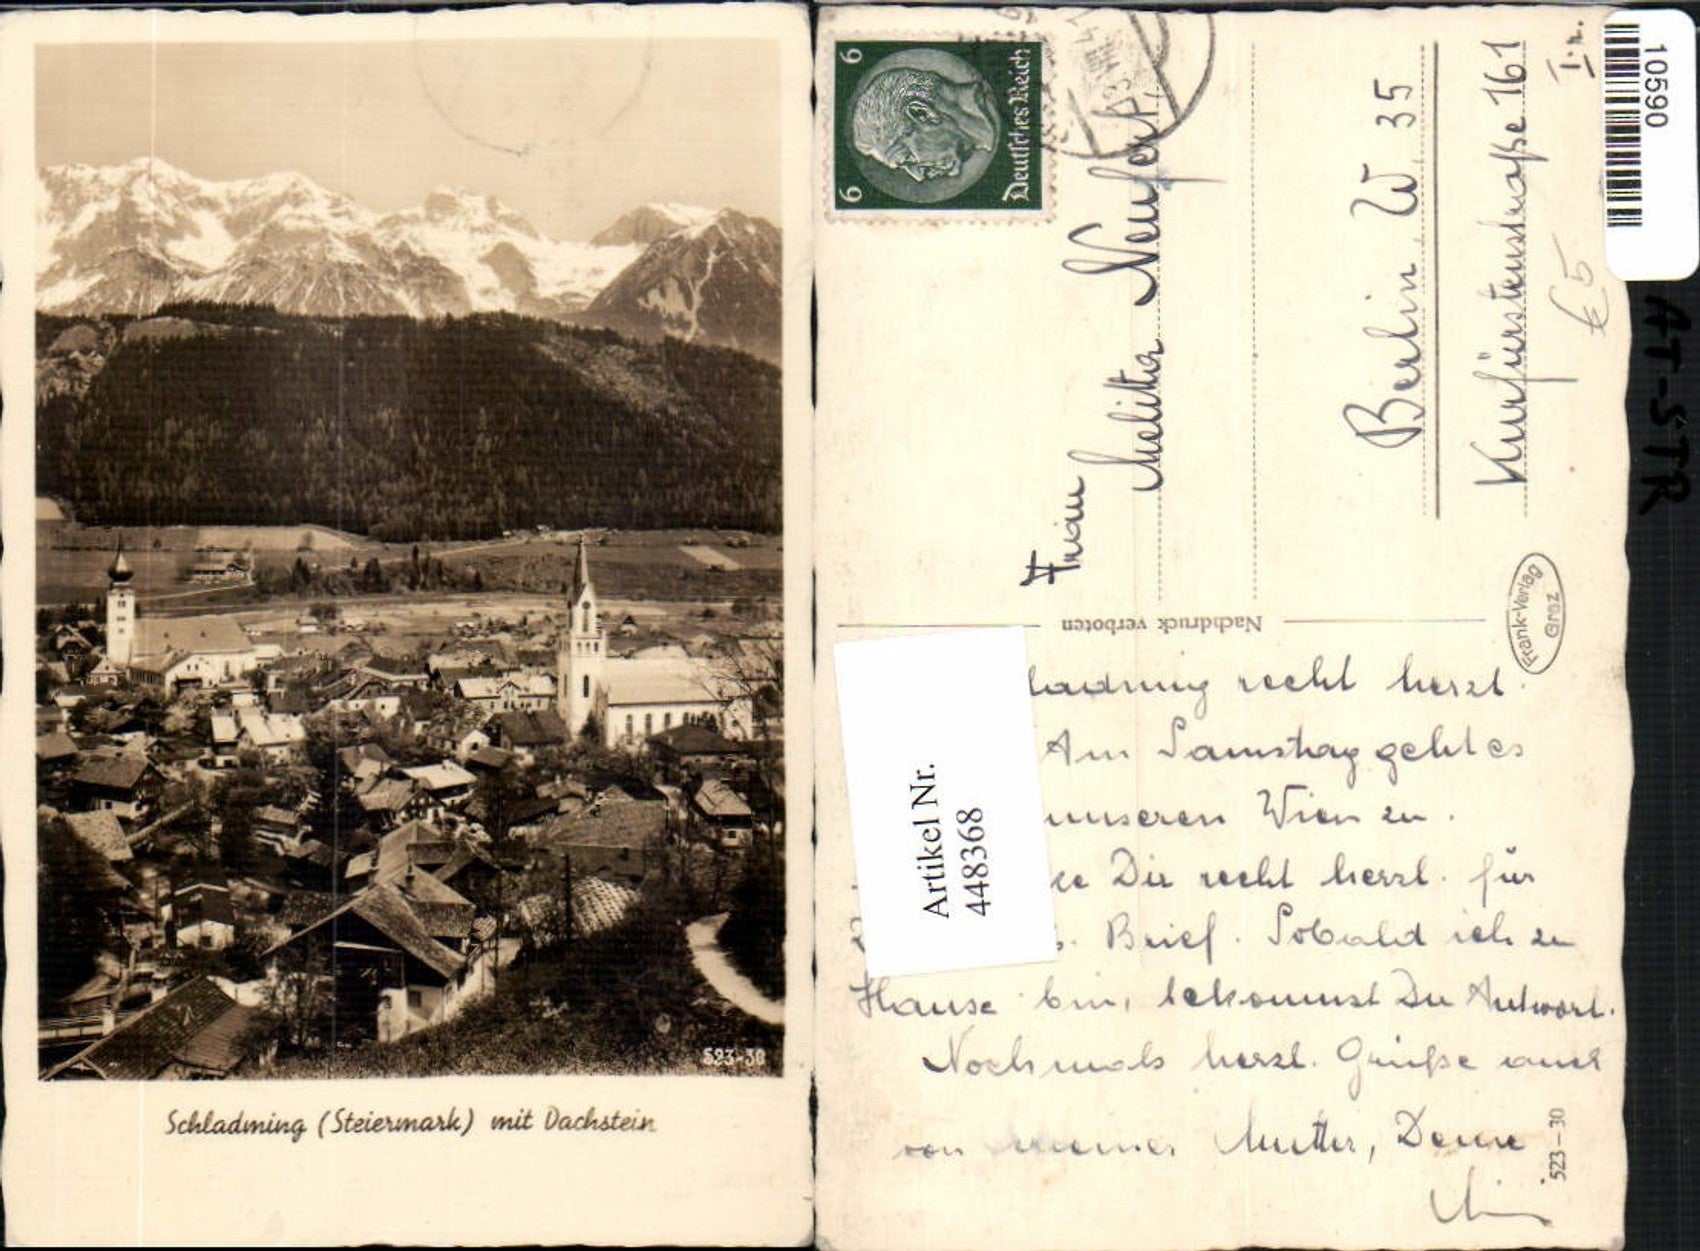 523-30
Schladming (Steiermark) mit Dachstein
6
6
Deutsches Reich
Frau
Melitta Neufert,
Berlin W. 35
Kurfürstenstraße 161
I. R.
€5
10590
AT-STR
Nachdruck verboten
Frank-Verlag
Graz
Artikel Nr.
448368
ladming recht herzl.
Am Samstag geht es
unseren Wien zu.
ke Dir recht herzl. für
s. Brief. Sobald ich zu
Hause bin, bekommst Du Antwort.
Nochmals herzl. Grüße auch
von meiner Mutter, Deine
523-30